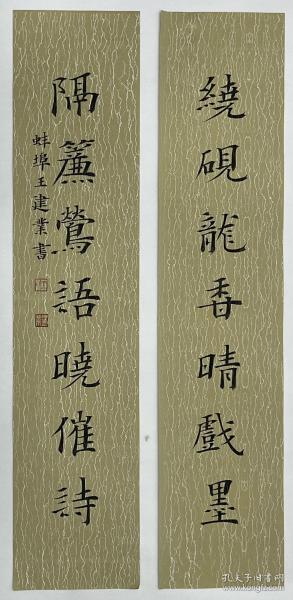 繞硯龍香晴戲墨
隔簾鶯語曉催詩
蚌埠王建業書
孔夫子旧书网